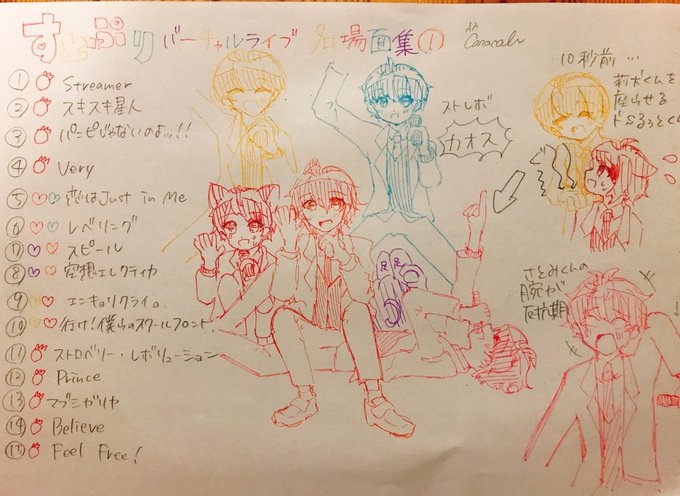 すとぷり バーチャルライブ 名場面集①
① Streamer
② スキスキ星人
③ パーピじゃないのよッ!!
④ Very
⑤ 恋はJust in Me
⑥ レベリング
⑦ スピール
⑧ 空想エレクティカ
⑨ エンキョリクライ。
⑩ 行け!僕らのスクールフロント。
⑪ ストロベリー・レボリューション
⑫ Prince
⑬ マブシガリヤ
⑭ Believe
⑮ Feel Free!
ストレボ
カオス
足 足
10秒前…
莉犬くんを
座らせる
ドSるぅとくん
ぐい
さとみくんの
腕が
反抗期